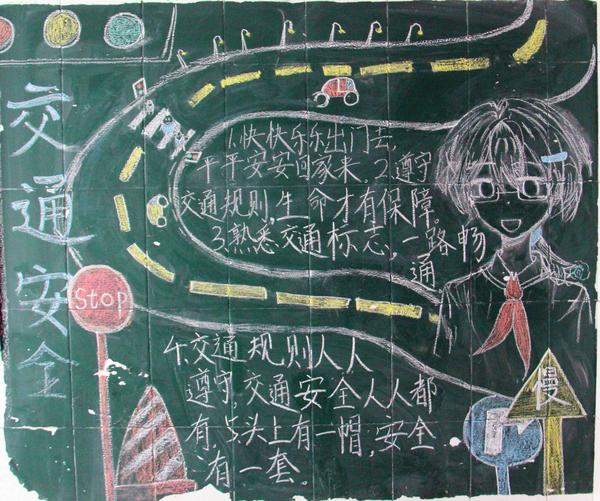 交通安全
1.快快乐乐出门去,
平平安安回家来。2.遵守
交通规则,生命才有保障。
3.熟悉交通标志,一路畅
通
Stop
4.交通规则人人
遵守,交通安全人人都
有。5.头上有一帽,安全
有一套。
慢